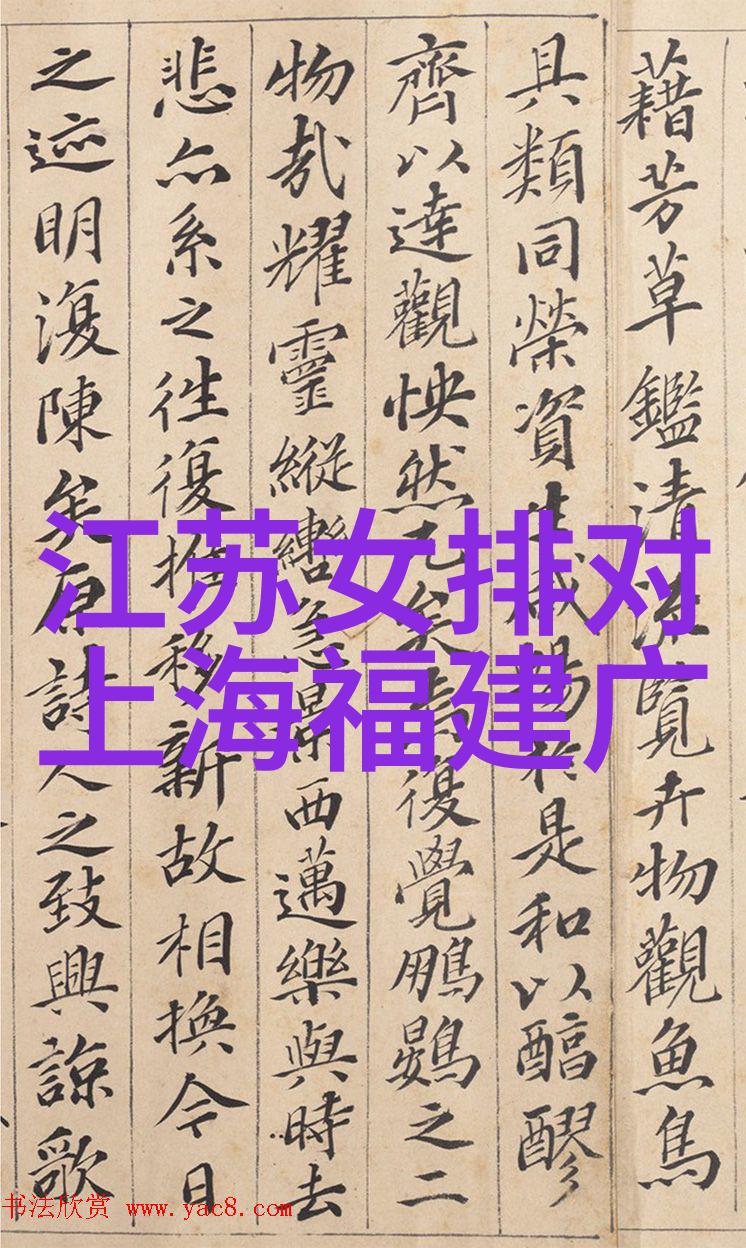 藉芳草鑑清流覽卉物觀魚鳥
具類同榮資生咸暢於是和以醇醪
齊以達觀怏然兀矣焉復覺鵬鷃之二
物哉耀靈縱轡急景西邁樂與時去
悲亦系之往復推移新故相換今日
之迹明復陳矣原詩人之致興諒歌
江苏女排对
上海福建广
书法欣赏 www.yac8.com